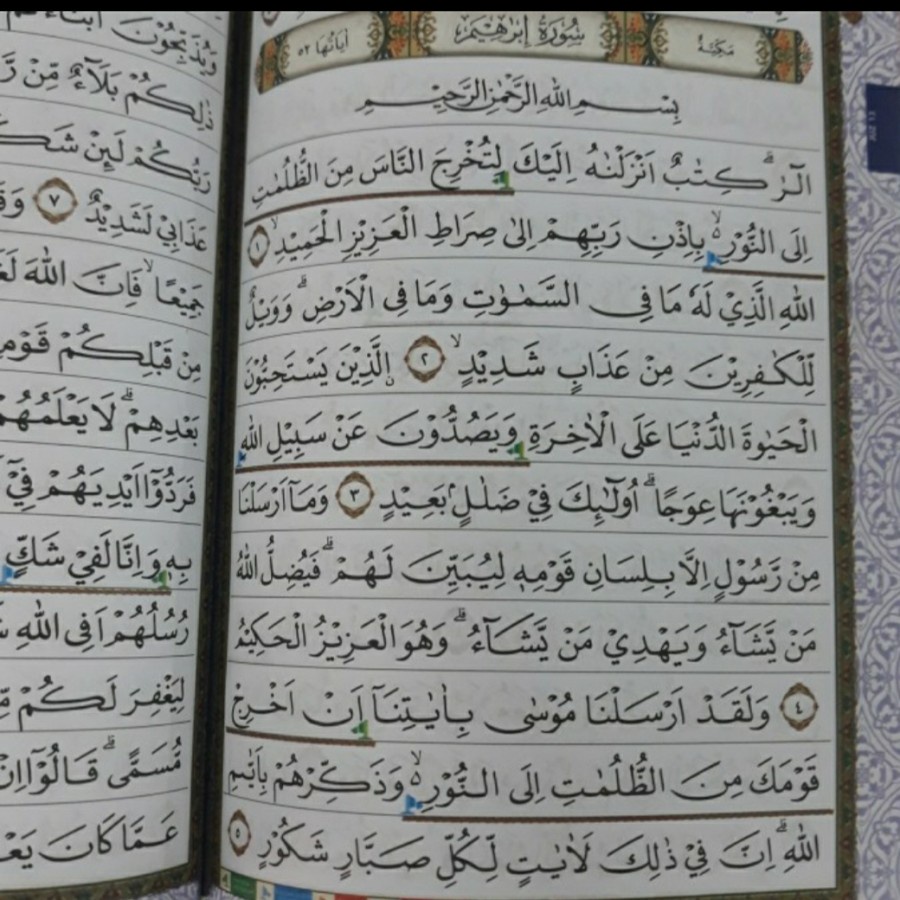 سُوْرَةُ اِبْرٰهِيْمَ
مَكِّيَّةٌ
اٰيَاتُهَا ٥٢
بِسْمِ اللّٰهِ الرَّحْمٰنِ الرَّحِيْمِ
الٓرٰ ۗ كِتٰبٌ اَنْزَلْنٰهُ اِلَيْكَ لِتُخْرِجَ النَّاسَ مِنَ الظُّلُمٰتِ
اِلَى النُّوْرِ ۙ بِاِذْنِ رَبِّهِمْ اِلٰى صِرَاطِ الْعَزِيْزِ الْحَمِيْدِ ۙ ١
اللّٰهِ الَّذِيْ لَهٗ مَا فِى السَّمٰوٰتِ وَمَا فِى الْاَرْضِ ۗ وَوَيْلٌ
لِّلْكٰفِرِيْنَ مِنْ عَذَابٍ شَدِيْدٍ ۙ ٢ ۨالَّذِيْنَ يَسْتَحِبُّوْنَ
الْحَيٰوةَ الدُّنْيَا عَلَى الْاٰخِرَةِ وَيَصُدُّوْنَ عَنْ سَبِيْلِ اللّٰهِ
وَيَبْغُوْنَهَا عِوَجًا ۗ اُولٰۤىِٕكَ فِيْ ضَلٰلٍ ۢ بَعِيْدٍ ٣ وَمَآ اَرْسَلْنَا
مِنْ رَّسُوْلٍ اِلَّا بِلِسَانِ قَوْمِهٖ لِيُبَيِّنَ لَهُمْ ۗ فَيُضِلُّ اللّٰهُ
مَنْ يَّشَاۤءُ وَيَهْدِيْ مَنْ يَّشَاۤءُ ۗ وَهُوَ الْعَزِيْزُ الْحَكِيْمُ
٤ وَلَقَدْ اَرْسَلْنَا مُوْسٰى بِاٰيٰتِنَآ اَنْ اَخْرِجْ
قَوْمَكَ مِنَ الظُّلُمٰتِ اِلَى النُّوْرِ ۙ وَذَكِّرْهُمْ بِاَيّٰىمِ
اللّٰهِ ۗ اِنَّ فِيْ ذٰلِكَ لَاٰيٰتٍ لِّكُلِّ صَبَّارٍ شَكُوْرٍ ٥
وَيُذَبِّحُوْنَ
ذٰلِكُمْ بَلَاۤءٌ مِّنْ
رَبُّكُمْ لَىِٕنْ
عَذَابِيْ لَشَدِيْدٌ ٧
جَمِيْعًا ۙ فَاِنَّ اللّٰهَ
مِنْ قَبْلِكُمْ
بَعْدِهِمْ ۗ لَا يَعْلَمُهُمْ
فَرَدُّوْٓا اَيْدِيَهُمْ فِيْٓ
بِهٖ وَاِنَّا لَفِيْ شَكٍّ
رُسُلُهُمْ اَفِى اللّٰهِ
لِيَغْفِرَ لَكُمْ
مُّسَمًّى ۗ قَالُوْٓا اِنْ
عَمَّا كَانَ